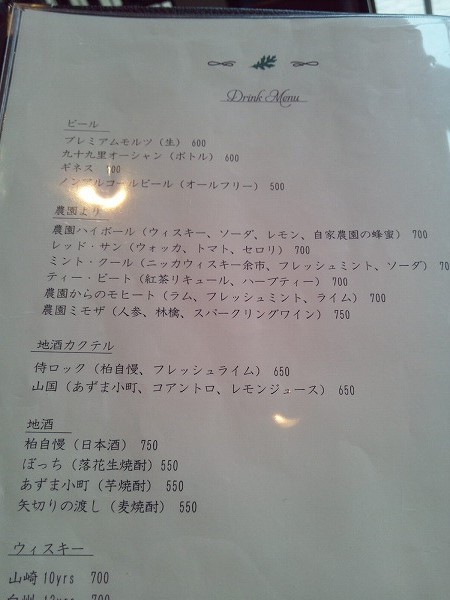 Drink Menu
ビール
プレミアムモルツ（生） 600
九十九里オーシャン（ボトル） 600
ギネス 00
ノンアルコールビール（オールフリー） 500
農園より
農園ハイボール（ウィスキー、ソーダ、レモン、自家農園の蜂蜜） 700
レッド・サン（ウォッカ、トマト、セロリ） 700
ミント・クール（ニッカウィスキー余市、フレッシュミント、ソーダ） 70
ティー・ビート（紅茶リキュール、ハーブティー） 700
農園からのモヒート（ラム、フレッシュミント、ライム） 700
農園ミモザ（人参、林檎、スパークリングワイン） 750
地酒カクテル
侍ロック（柏自慢、フレッシュライム） 650
山国（あずま小町、コアントロ、レモンジュース） 650
地酒
柏自慢（日本酒） 750
ぼっち（落花生焼酎） 550
あずま小町（芋焼酎） 550
矢切りの渡し（麦焼酎） 550
ウィスキー
山崎 10yrs 700